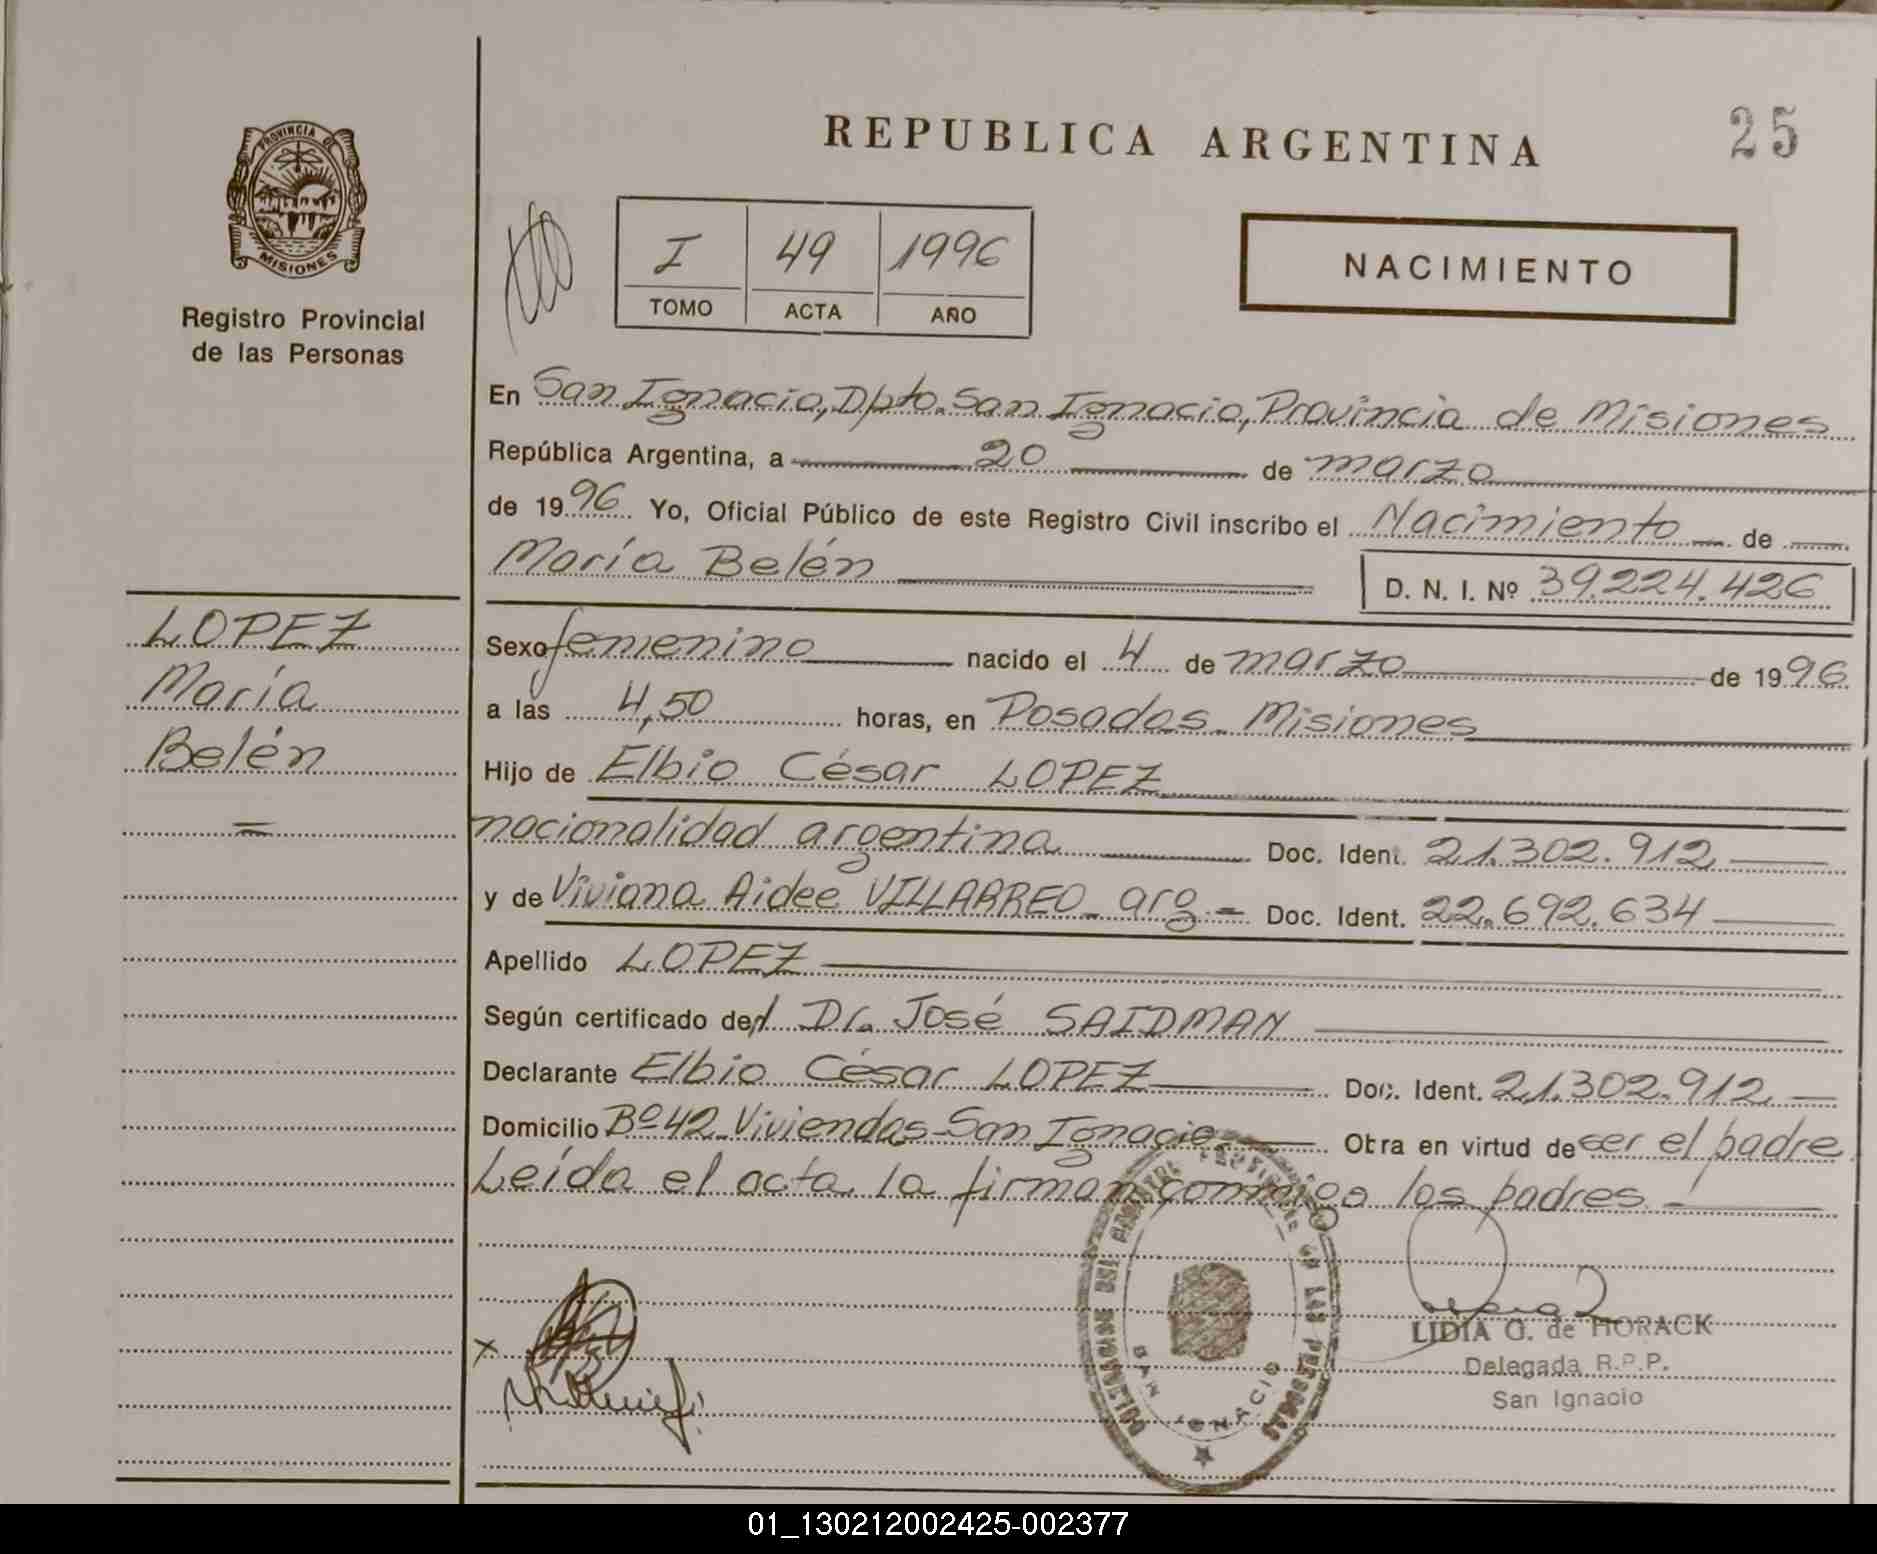 REPUBLICA ARGENTINA
25
PROVINCIA DE
MISIONES
Registro Provincial
de las Personas
I 49 1996
TOMO ACTA AÑO
NACIMIENTO
En San Ignacio, Dpto. San Ignacio, Provincia de Misiones
República Argentina, a 20 de marzo
de 1996 Yo, Oficial Público de este Registro Civil inscribo el Nacimiento de
María Belén D. N. I. Nº 39.224.426
LOPEZ
María
Belén
Sexo femenino nacido el 4 de marzo de 1996
a las 4,50 horas, en Posadas - Misiones
Hijo de Elbio César LOPEZ
nacionalidad argentina Doc. Ident. 21.302.912
y de Viviana Aidee VILLARREO - arg. - Doc. Ident. 22.692.634
Apellido LOPEZ
Según certificado del Dr. José SAIDMAN
Declarante Elbio César LOPEZ Doc. Ident. 21.302.912
Domicilio Bº 42 Viviendas - San Ignacio Obra en virtud de ser el padre
Leída el acta la firman conmigo los padres
DELEGACION DEL REGISTRO PROVINCIAL DE LAS PERSONAS
SAN IGNACIO
LIDIA G. de HORACK
Delegada R.P.P.
San Ignacio
01_130212002425-002377